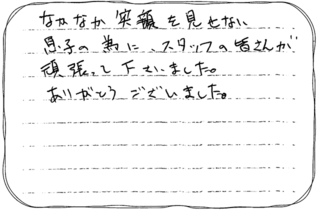 なかなか笑顔を見せない
息子の為に、スタッフの皆さんが
頑張って下さいました。
ありがとうございました。